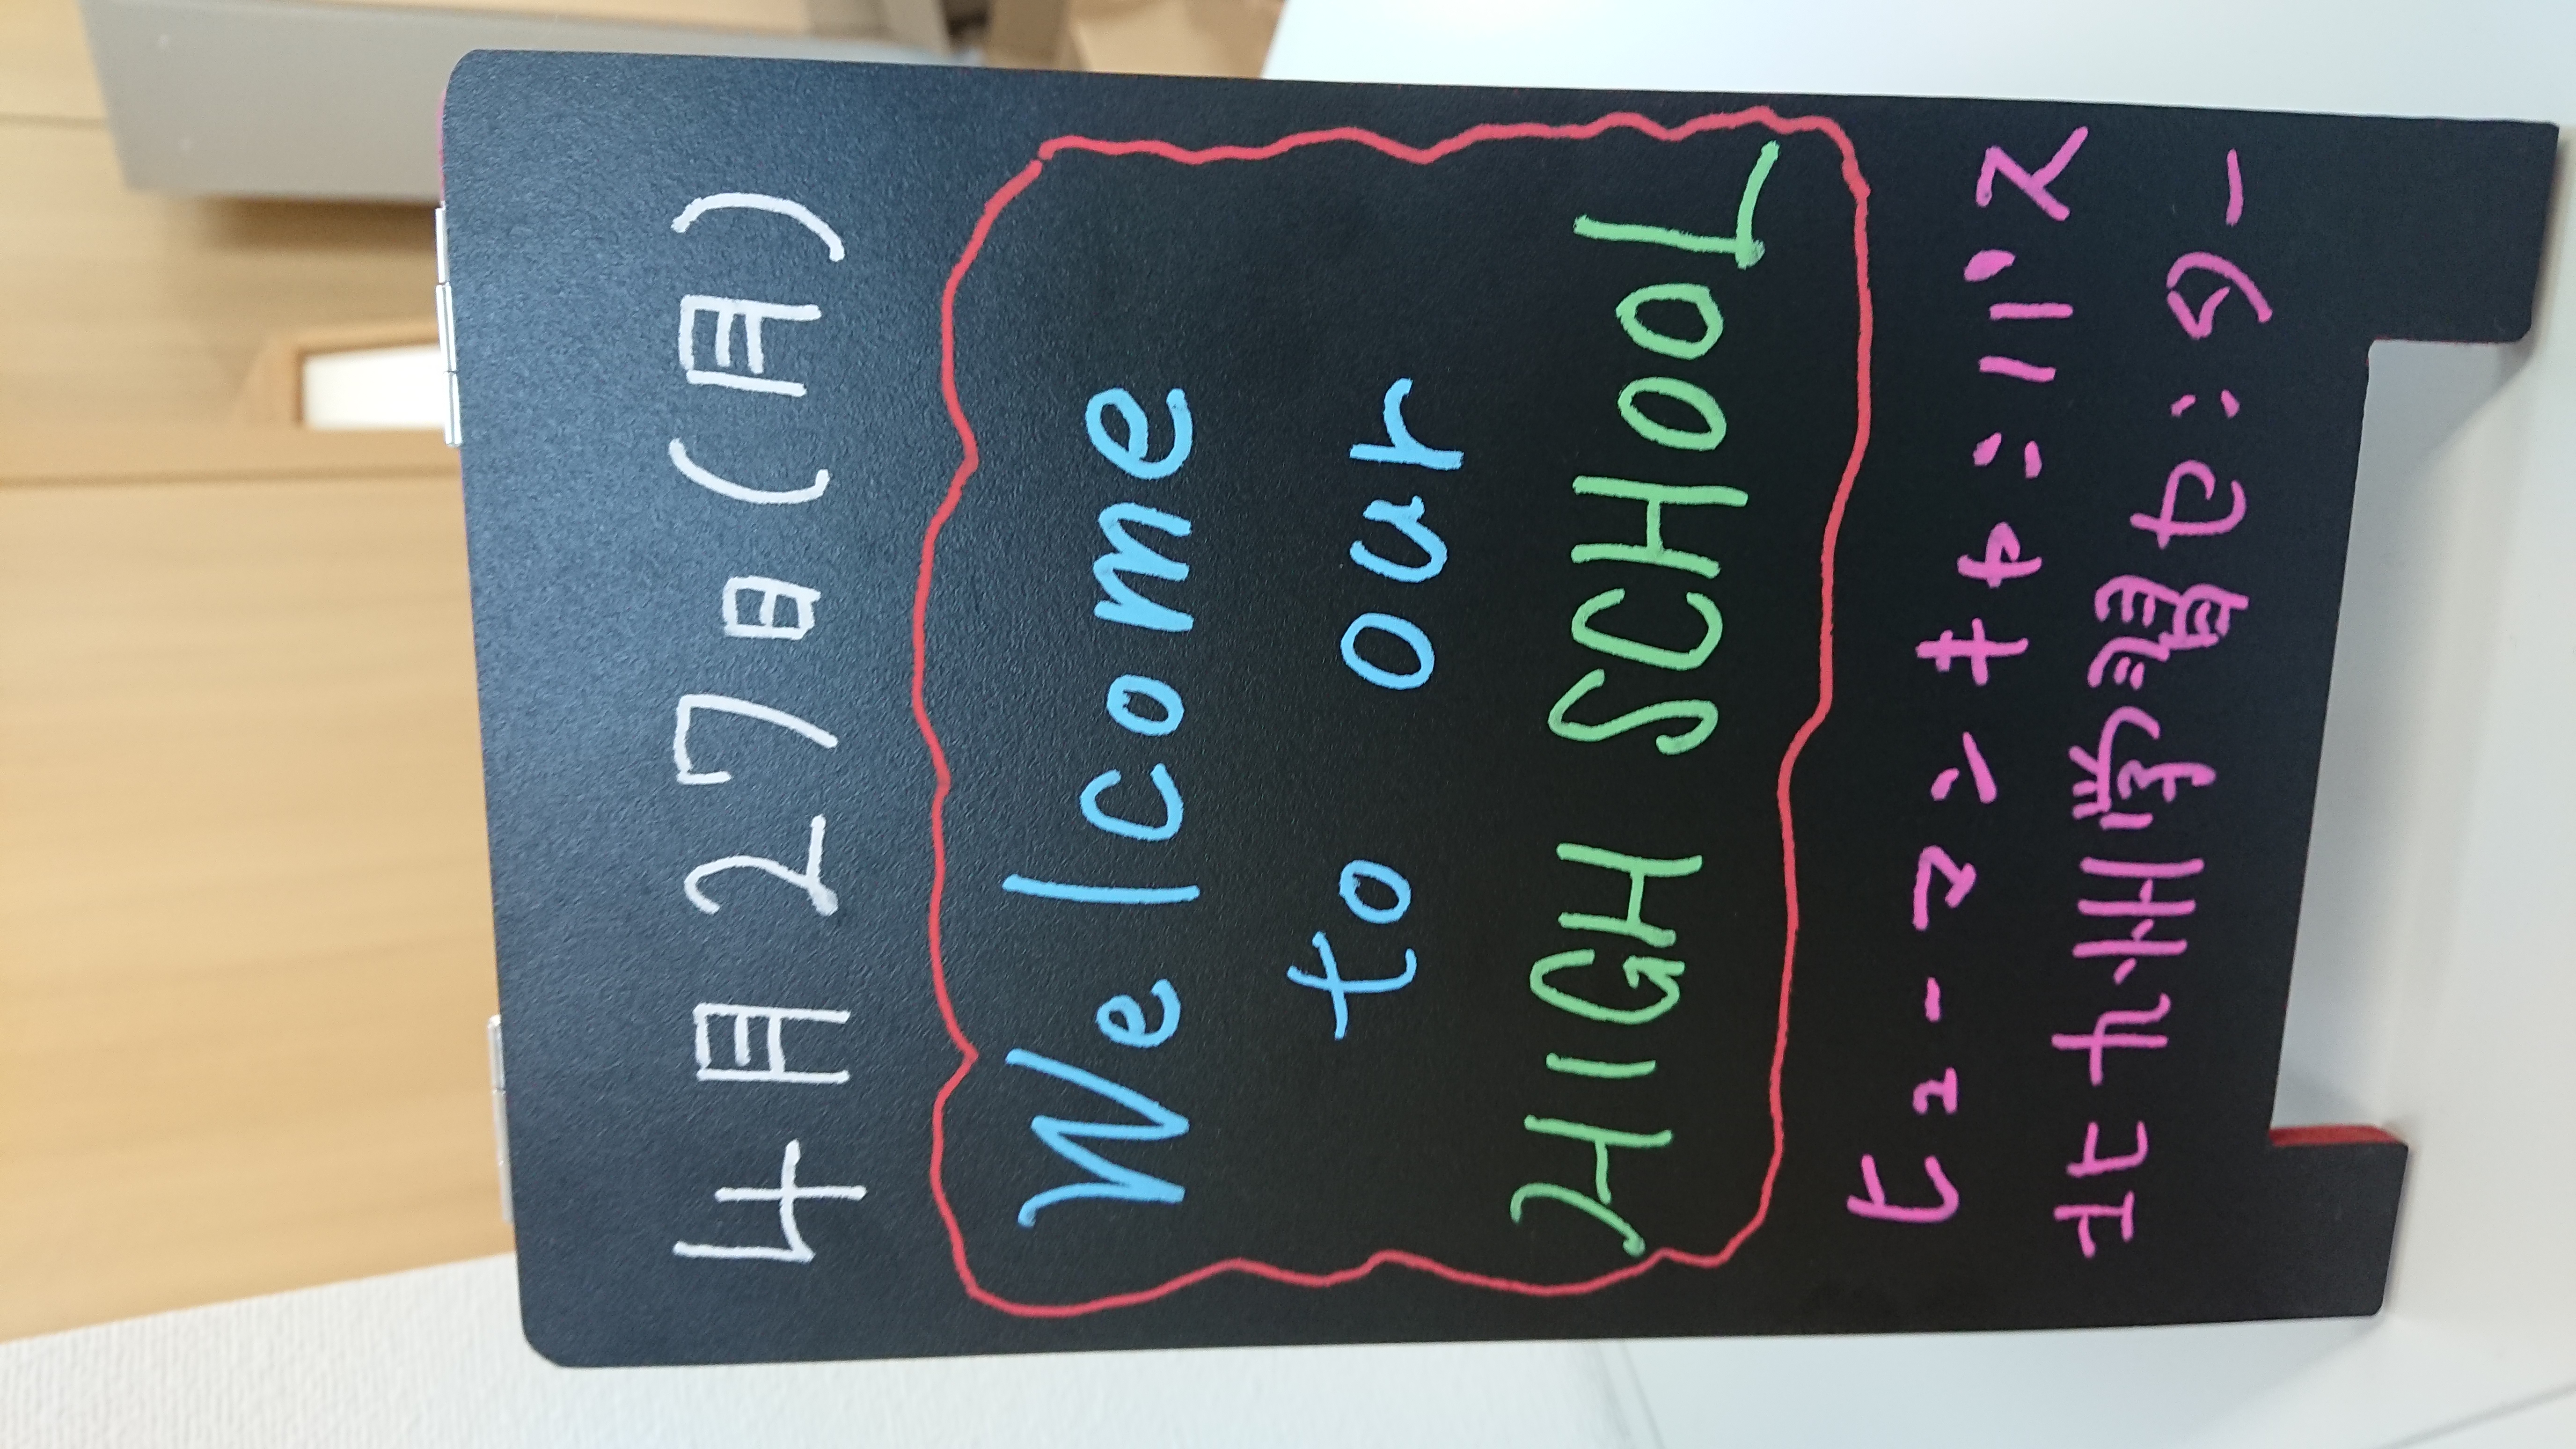 4月27日(月)
Welcome
to our
HIGH SCHOOL
ヒューマンキャンパス
北九州学習センター